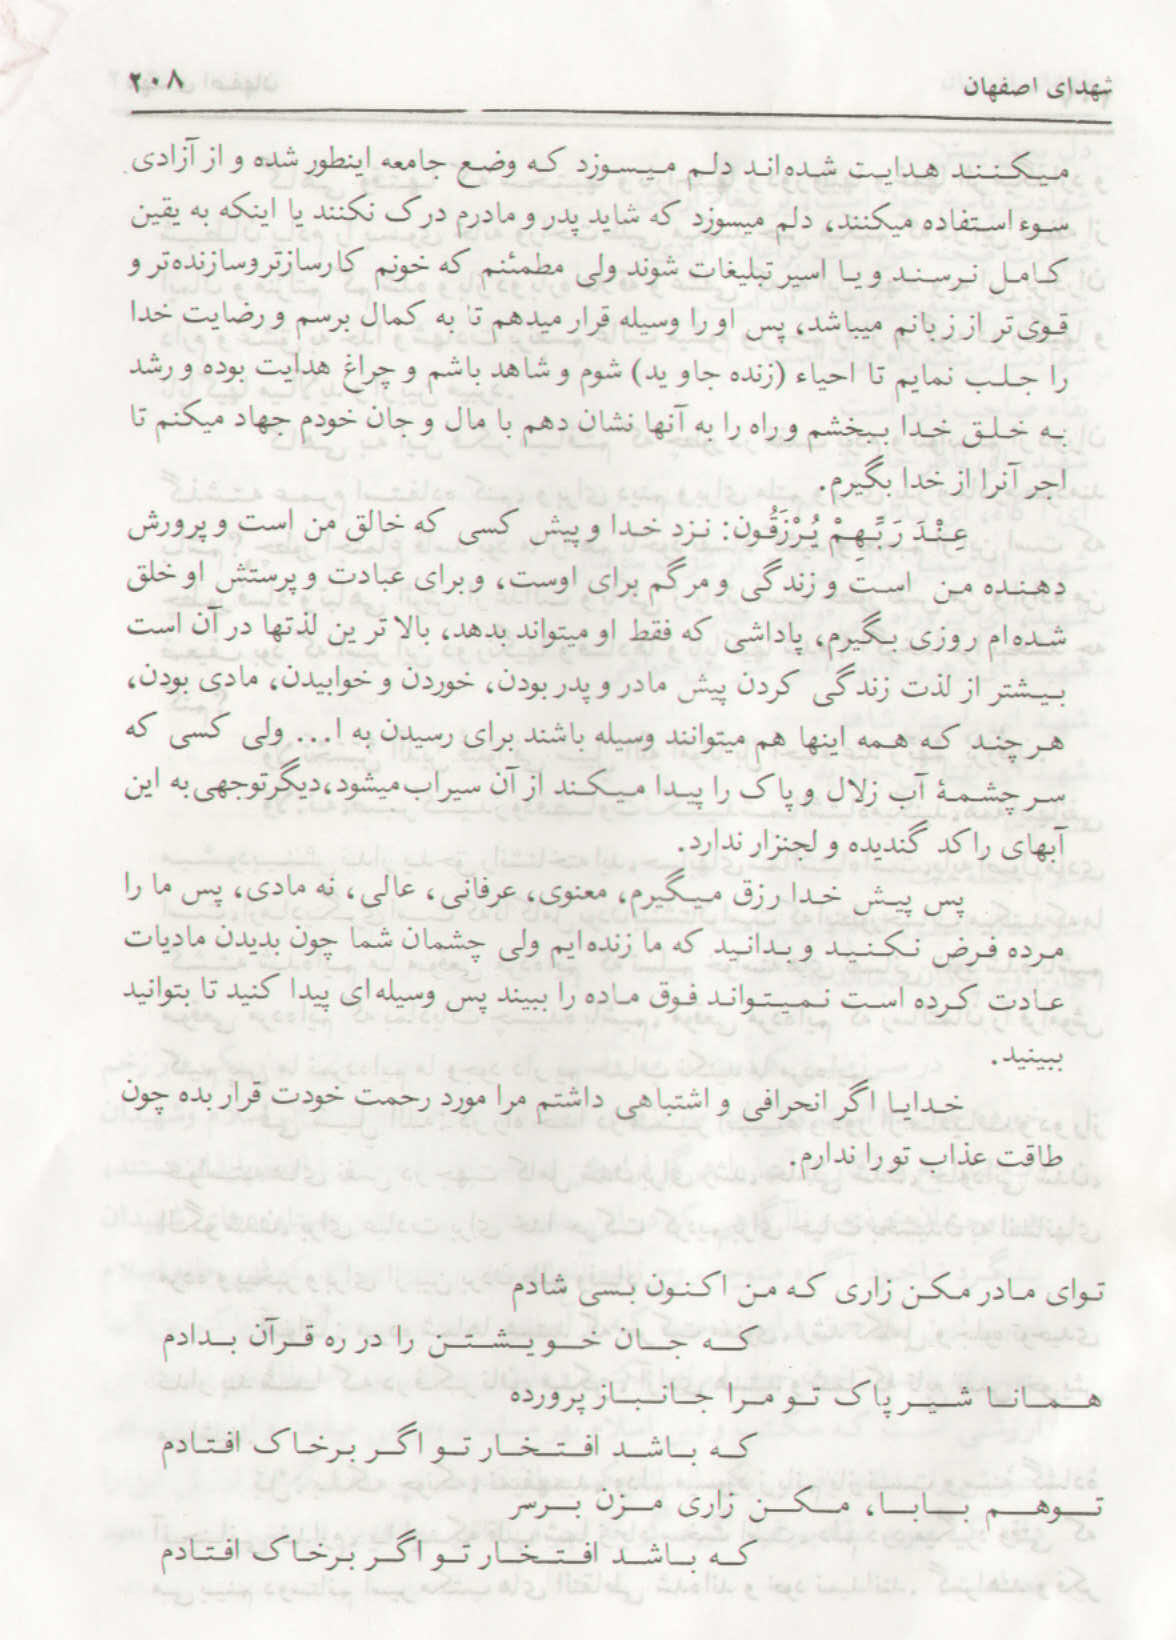 شهدای اصفهان ۲۰۸
میکنند هدایت شده‌اند دلم میسوزد که وضع جامعه اینطور شده و از آزادی
سوء استفاده میکنند، دلم میسوزد که شاید پدر و مادرم درک نکنند یا اینکه به یقین
کامل نرسند و یا اسیر تبلیغات شوند ولی مطمئنم که خونم کارسازتر و سازنده‌تر و
قوی‌تر از زبانم میباشد، پس او را وسیله قرار میدهم تا به کمال برسم و رضایت خدا
را جلب نمایم تا احیاء (زنده جاوید) شوم و شاهد باشم و چراغ هدایت بوده و رشد
به خلق خدا ببخشم و راه را به آنها نشان دهم با مال و جان خودم جهاد میکنم تا
اجر آنرا از خدا بگیرم.
عِنْدَ رَبِّهِمْ يُرْزَقُون: نزد خدا و پیش کسی که خالق من است و پرورش
دهنده من است و زندگی و مرگم برای اوست، و برای عبادت و پرستش او خلق
شده‌ام روزی بگیرم، پاداشی که فقط او میتواند بدهد، بالاترین لذتها در آن است
بیشتر از لذت زندگی کردن پیش مادر و پدر بودن، خوردن و خوابیدن، مادی بودن،
هرچند که همه اینها هم میتوانند وسیله باشند برای رسیدن به ا... ولی کسی که
سرچشمهٔ آب زلال و پاک را پیدا میکند از آن سیراب میشود، دیگر توجهی به این
آبهای راکد گندیده و لجنزار ندارد.
پس پیش خدا رزق میگیرم، معنوی، عرفانی، عالی، نه مادی، پس ما را
مرده فرض نکنید و بدانید که ما زنده‌ایم ولی چشمان شما چون بدیدن مادیات
عادت کرده است نمیتواند فوق ماده را ببیند پس وسیله‌ای پیدا کنید تا بتوانید
ببینید.
خدایا اگر انحرافی و اشتباهی داشتم مرا مورد رحمت خودت قرار بده چون
طاقت عذاب تو را ندارم.
توای مادر مکن زاری که من اکنون بسی شادم
که جان خویشتن را در ره قرآن بدادم
همانا شیر پاک تو مرا جانباز پرورده
که باشد افتخار تو اگر برخاک افتادم
توهم بابا، مکن زاری مزن برسر
که باشد افتخار تو اگر برخاک افتادم